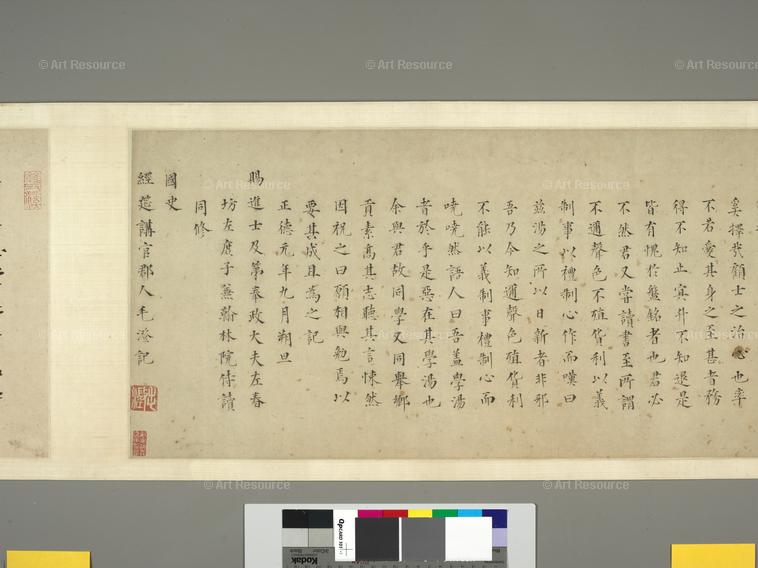 奚擇哉顧士之治心也率
不若愛其身之至甚者務
得不知止冥升不知退是
皆有愧於盤銘者也君必
不然君又嘗讀書至所謂
不邇聲色不殖貨利以義
制事以禮制心作而嘆曰
茲湯之所以日新者非邪
吾乃今知邇聲色殖貨利
不能以義制事禮制心而
嘵嘵然語人曰吾盖學湯
者於乎是惡在其學湯也
余與君故同學又同舉鄉
貢素高其志聽其言悚然
因祝之曰願相與勉焉以
要其成且為之記
正德元年九月朔旦
賜進士及第奉政大夫左春
坊左庶子兼翰林院侍讀
同修
國史
經筵講官郡人毛澄記
© Art Resource
© Art Resource
© Art Resource
© Art Resource
© Art Resource
© Art Resource
© Art Resource
© Art Resource
© Art Resource
© Art Resource
Kodak